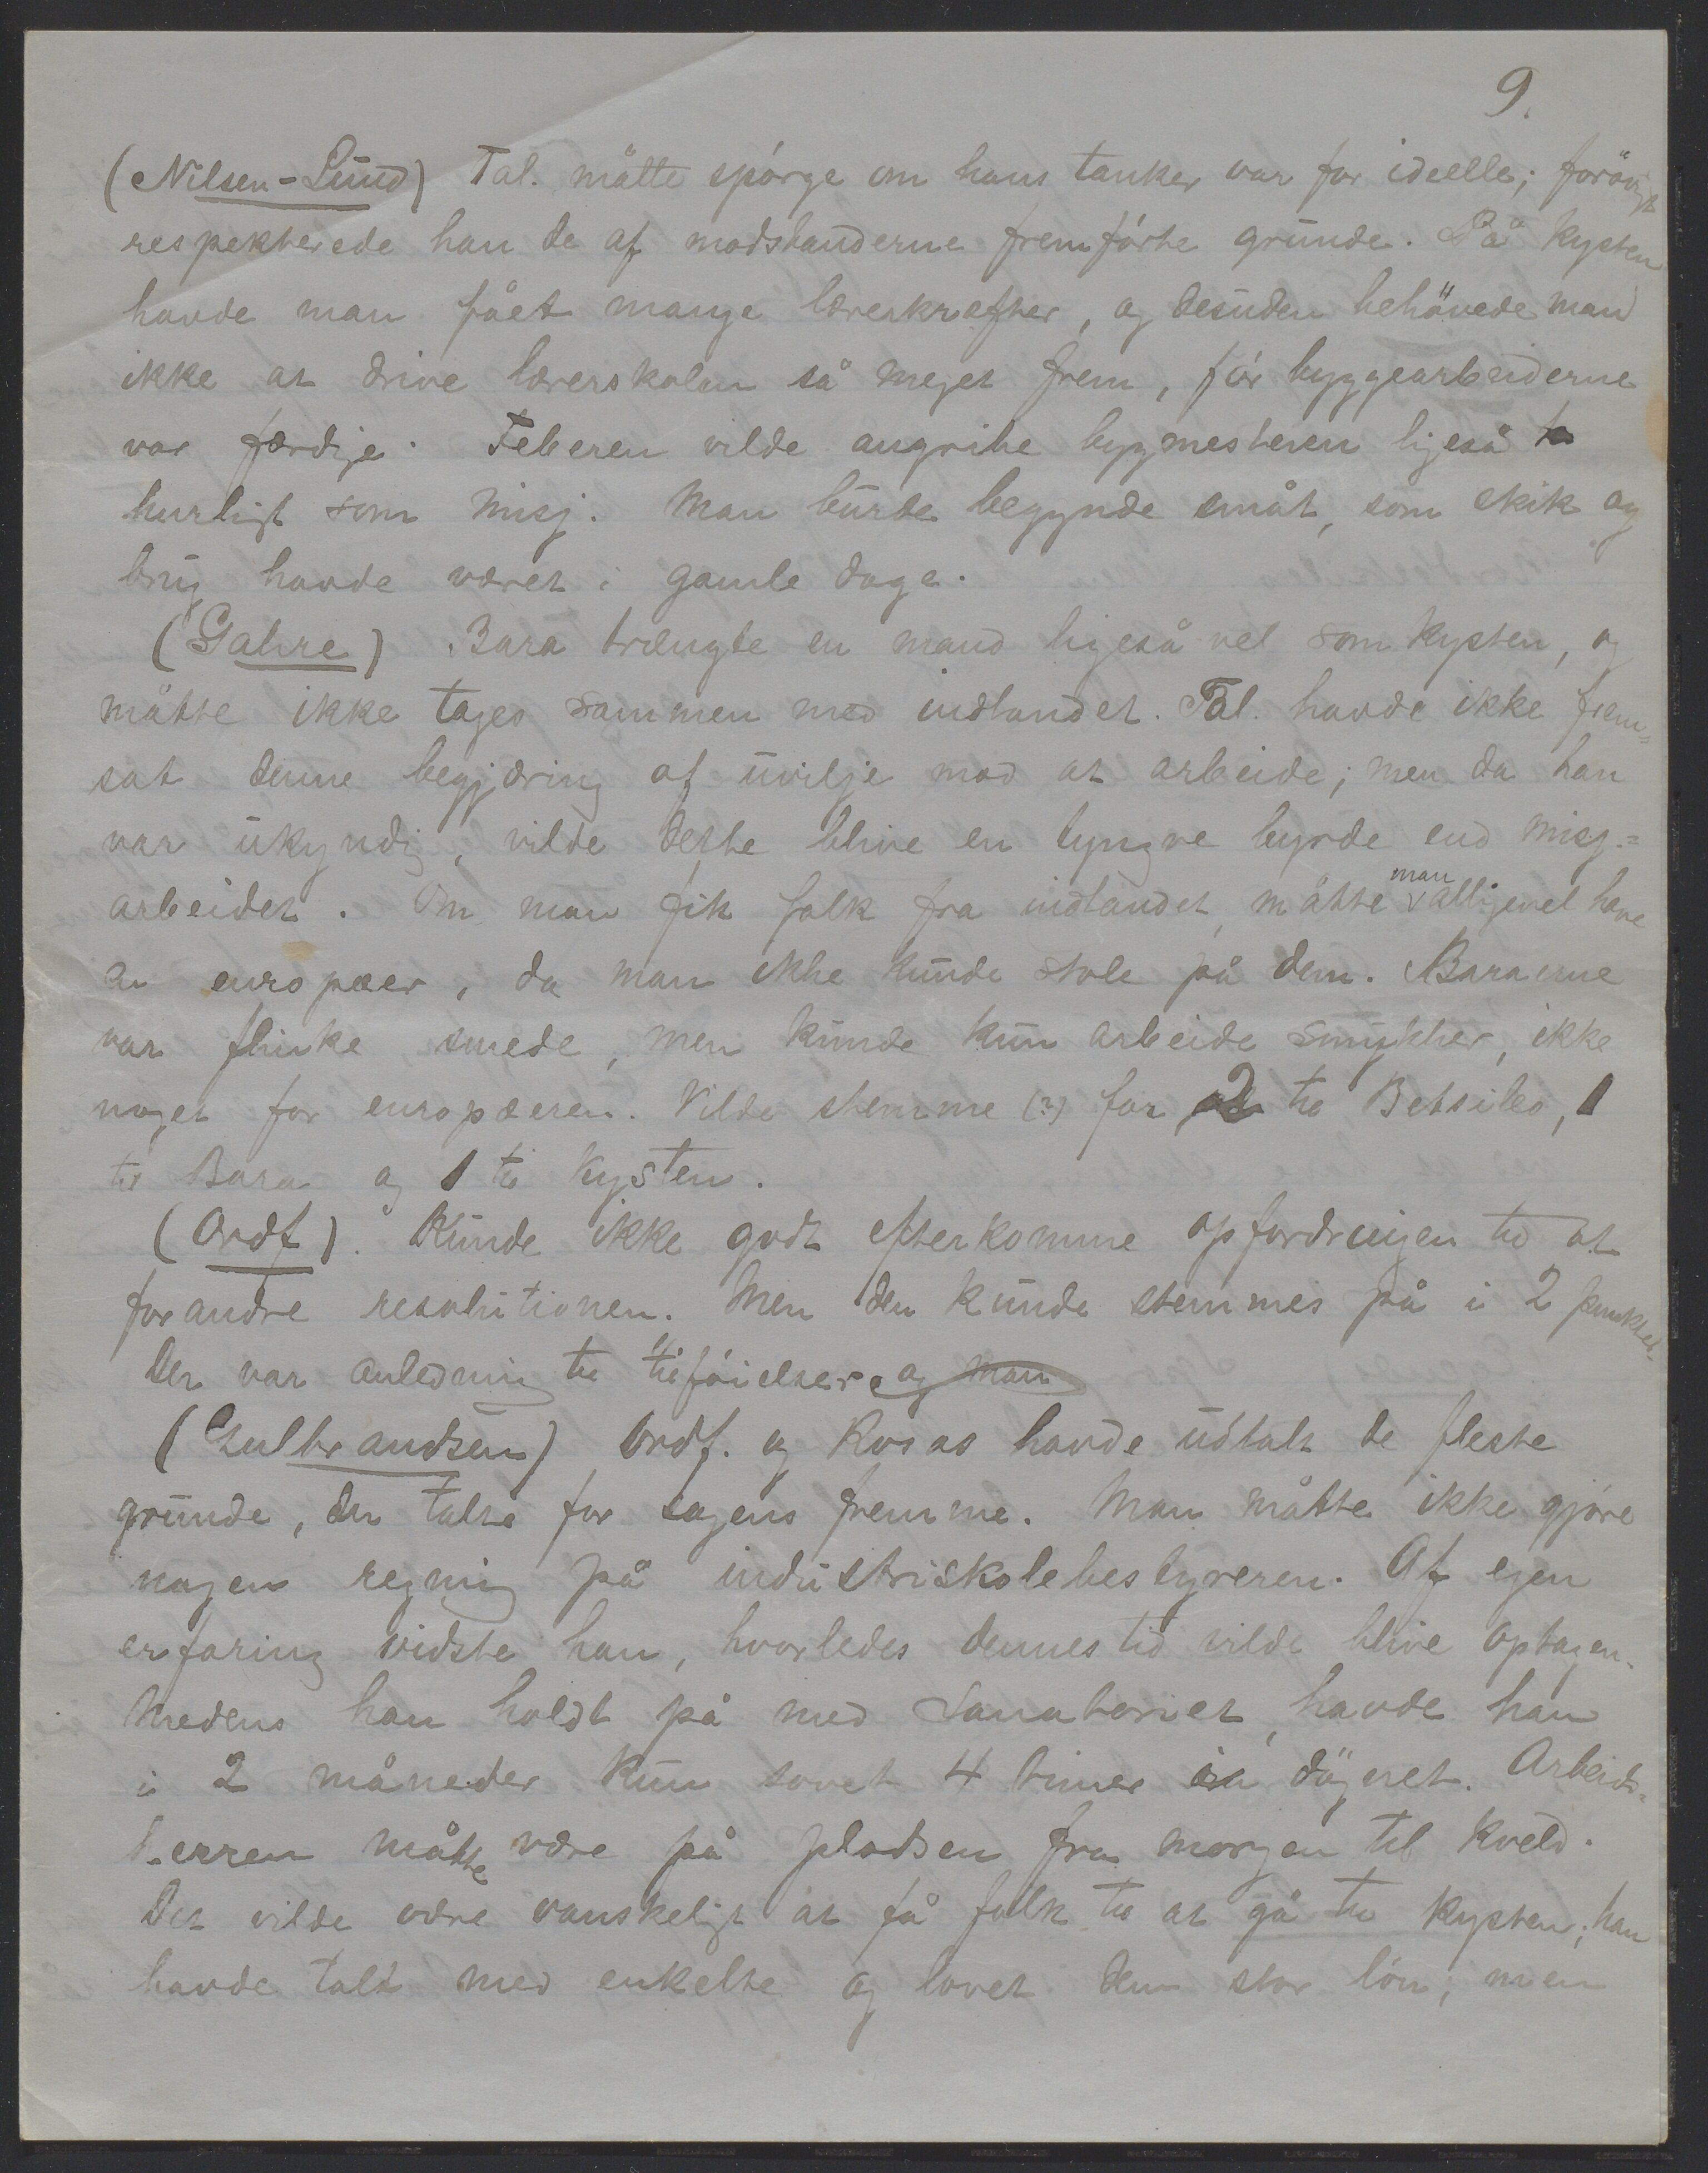 9.
(Nilsen-Lund) Tal. måtte spörge om hans tanker var for ideelle; forövigt
respekterede han de af modstanderne fremförte grunde. På kysten
havde man fået mange lærerkræfter, og desuden behövede man
ikke at drive lærerskolen så meget frem, för byggearbeiderne
var færdige. Feberen vilde angribe bygmesteren ligeså
hurtigt som misj. Man burde begynde småt, som skik og
brug havde været i gamle dage.
(Gahre) Bara trængte en mand ligeså vel som kysten, og
måtte ikke tages sammen med indlandet. Tal. havde ikke frem=
sat denne begjæring af uvilje mod at arbeide; men da han
var ukyndig, vilde dette blive en tyngre byrde end misj.=
arbeidet. Om man fik folk fra indlandet, måtte man alligevel have
en europæer, da man ikke kunde stole på dem. Baraerne
var flinke smede, men kunde kun arbeide smykker, ikke
noget for europæeren. Vilde stemme (?) for 2 til Betsileo, 1
til Bara og 1 til Kysten.
(Ordf). Kunde ikke godt efterkomme opfordringen til at
forandre resolutionen. Men den kunde stemmes på i 2 punkter.
Der var anledning til tilföielser. og man
(Gulbrandsen) Ordf. og Rosaas havde udtalt de fleste
grunde, der talte for sagens fremme. Man måtte ikke gjöre
nogen regning på industriskolebestyreren. Af egen
erfaring vidste han, hvorledes dennes tid vilde blive optagen.
Medens han holdt på med Sanatoriet, havde han
i 2 måneder kun sovet 4 timer i dögnet. Arbeids=
herren måtte være på pladsen fra morgen til kveld.
Det vilde være vanskeligt at få folk til at gå til Kysten; han
havde talt med enkelte og lovet dem stor lön; men